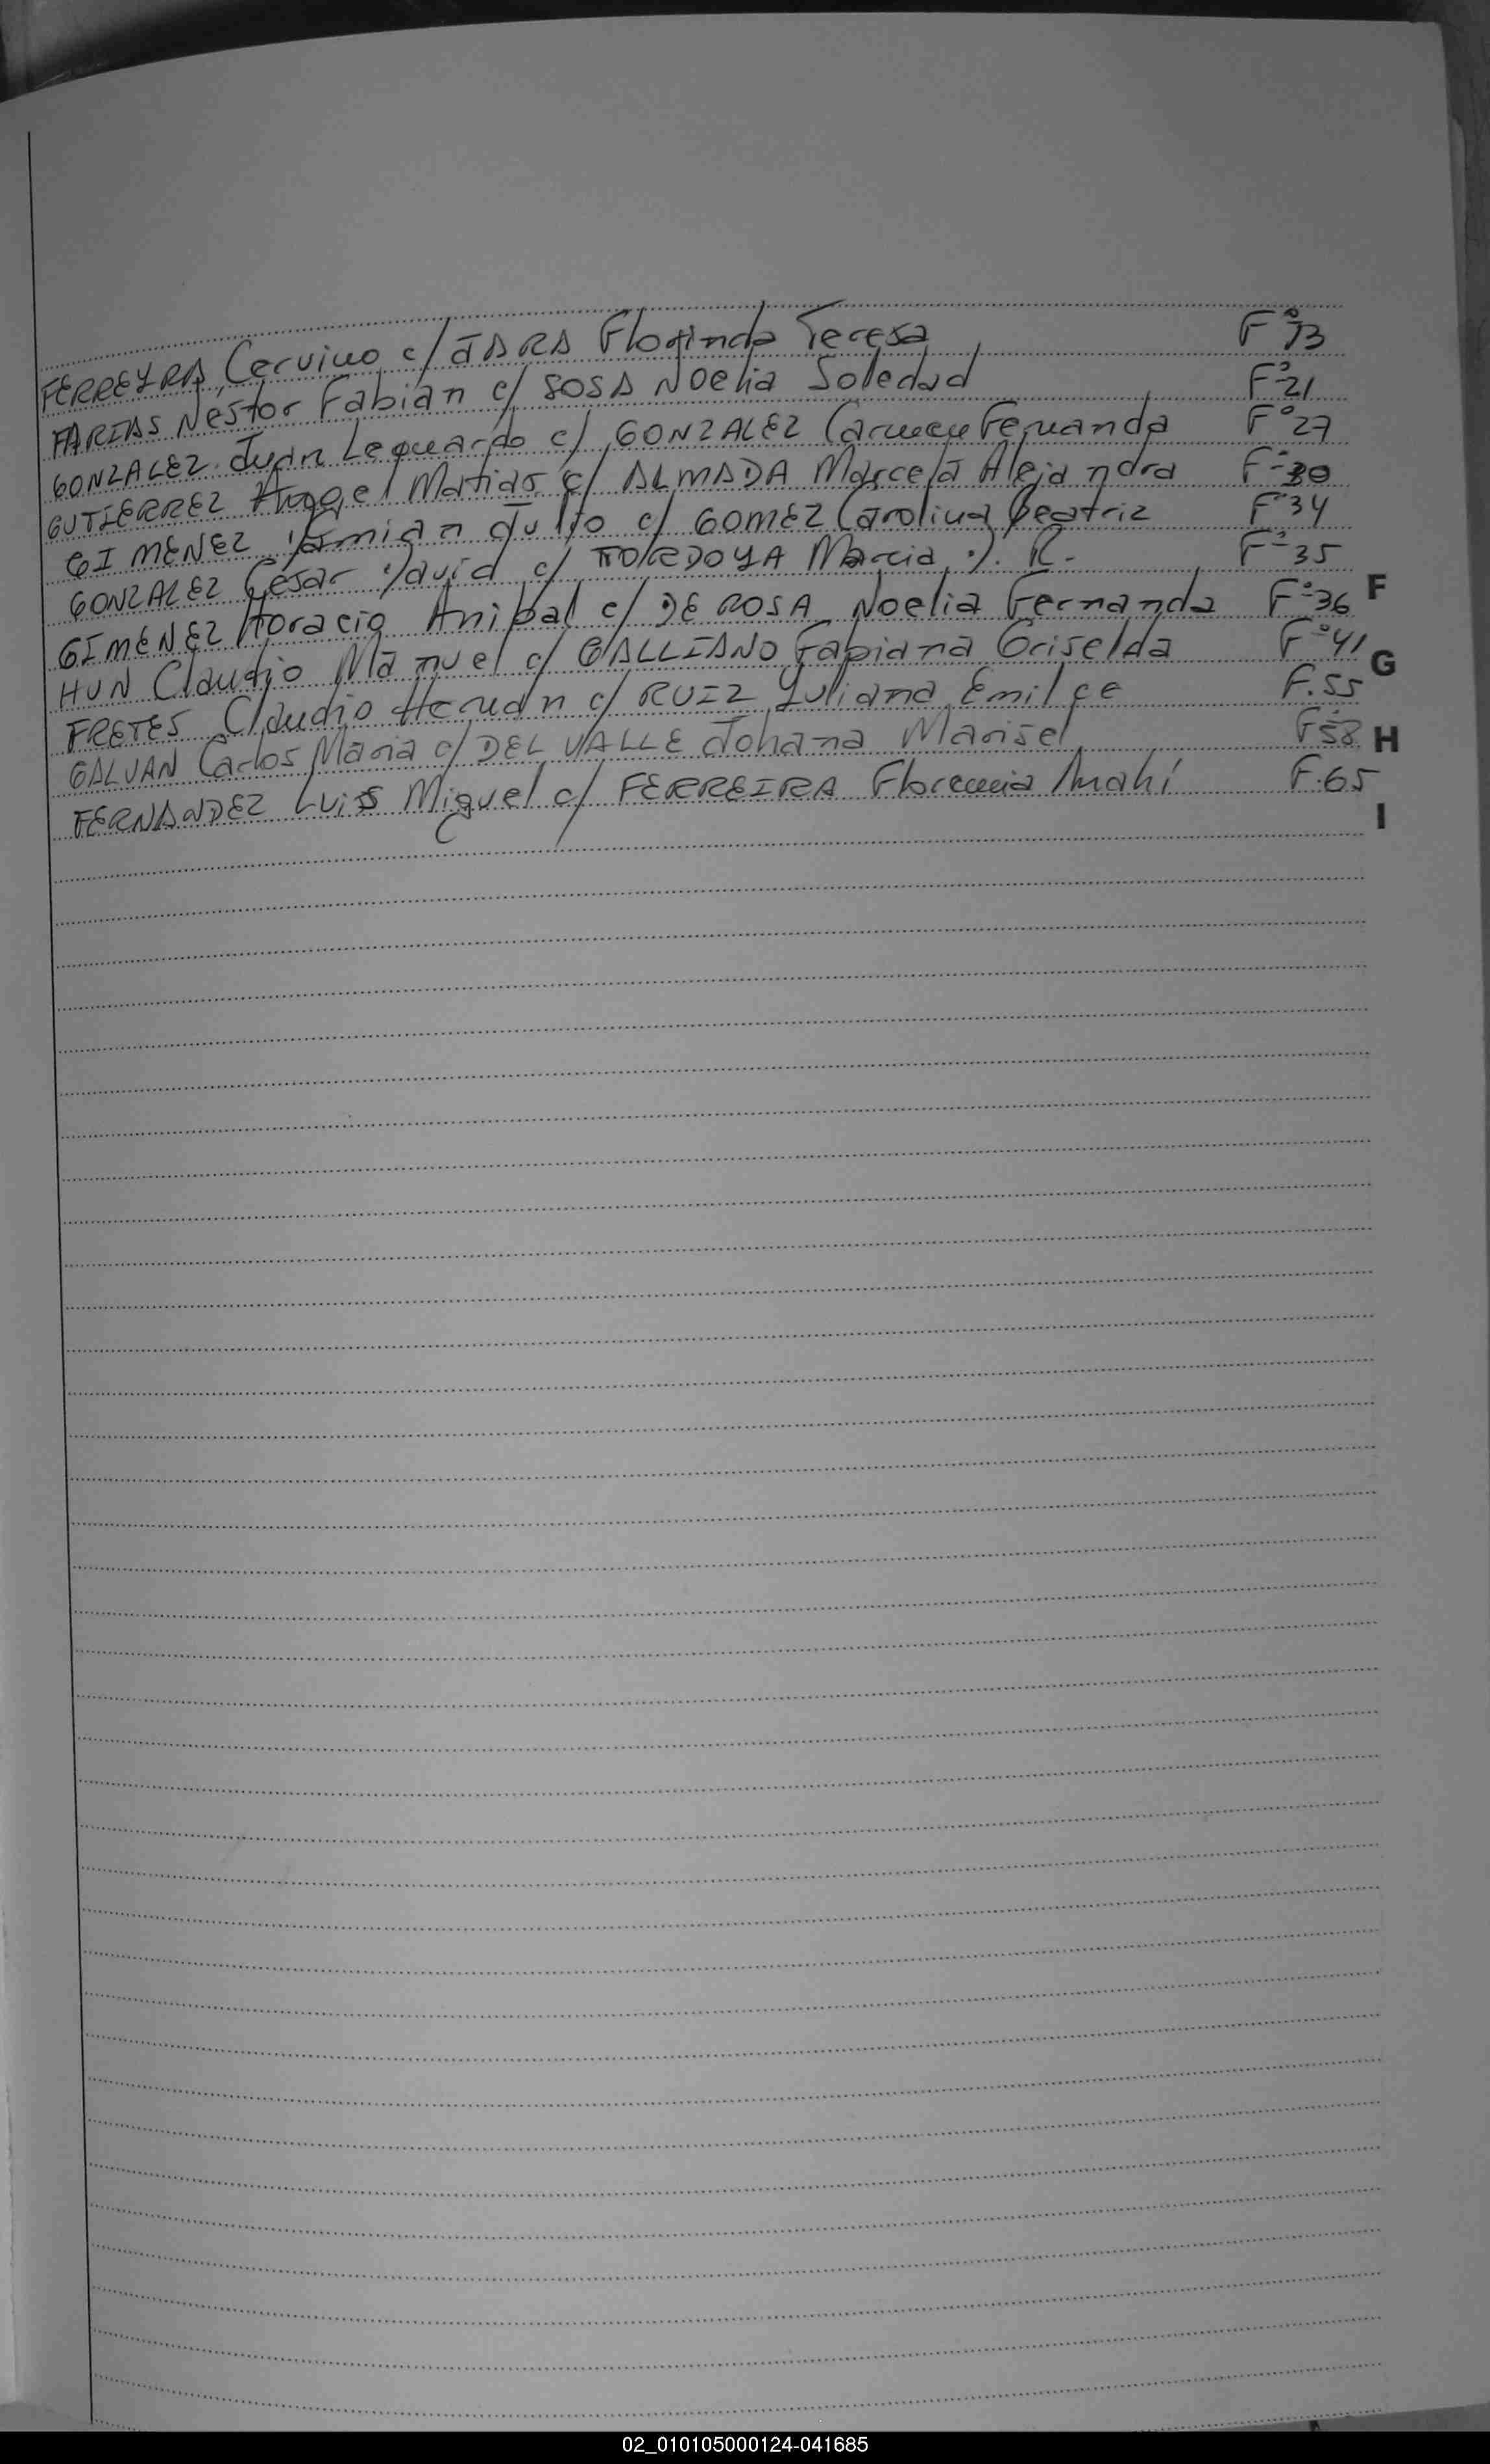 FERREYRA, Cervino c/ JARA Florinda Teresa F°13
FARIAS Néstor Fabián c/ SOSA Noelia Soledad F°21
GONZALEZ Juan Leonardo c/ GONZALEZ Carmen Fernanda F°27
GUTIERREZ Angel Matias c/ ALMADA Marcela Alejandra F°30
GIMENEZ Damian Julio c/ GOMEZ Carolina Beatriz F°34
GONZALEZ César David c/ TORDOYA Marcia D. R. F°35
GIMENEZ Horacio Anibal c/ DE ROSA Noelia Fernanda F°36
F
HUN Claudio Manuel c/ GALLIANO Fabiana Griselda F°41
G
FRETES Claudio Hernán c/ RUIZ Yuliana Emilce F.55
GALVAN Carlos Maria c/ DEL VALLE Johana Marisel F°58
H
FERNANDEZ Luis Miguel c/ FERREIRA Florencia Anahí F.65
I
02_010105000124-041685